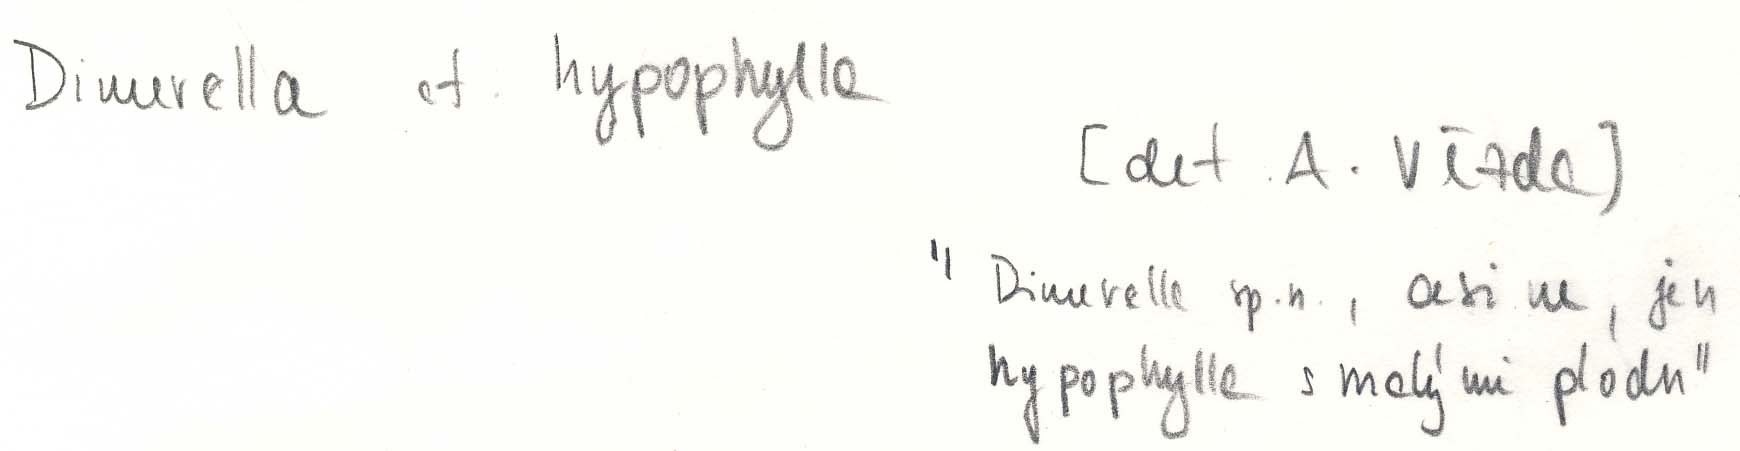 Dimerella cf. hypophylla
[det. A. Vězda]
"Dimerella sp.n., asi ne, jen
hypophylla s malými plodn"